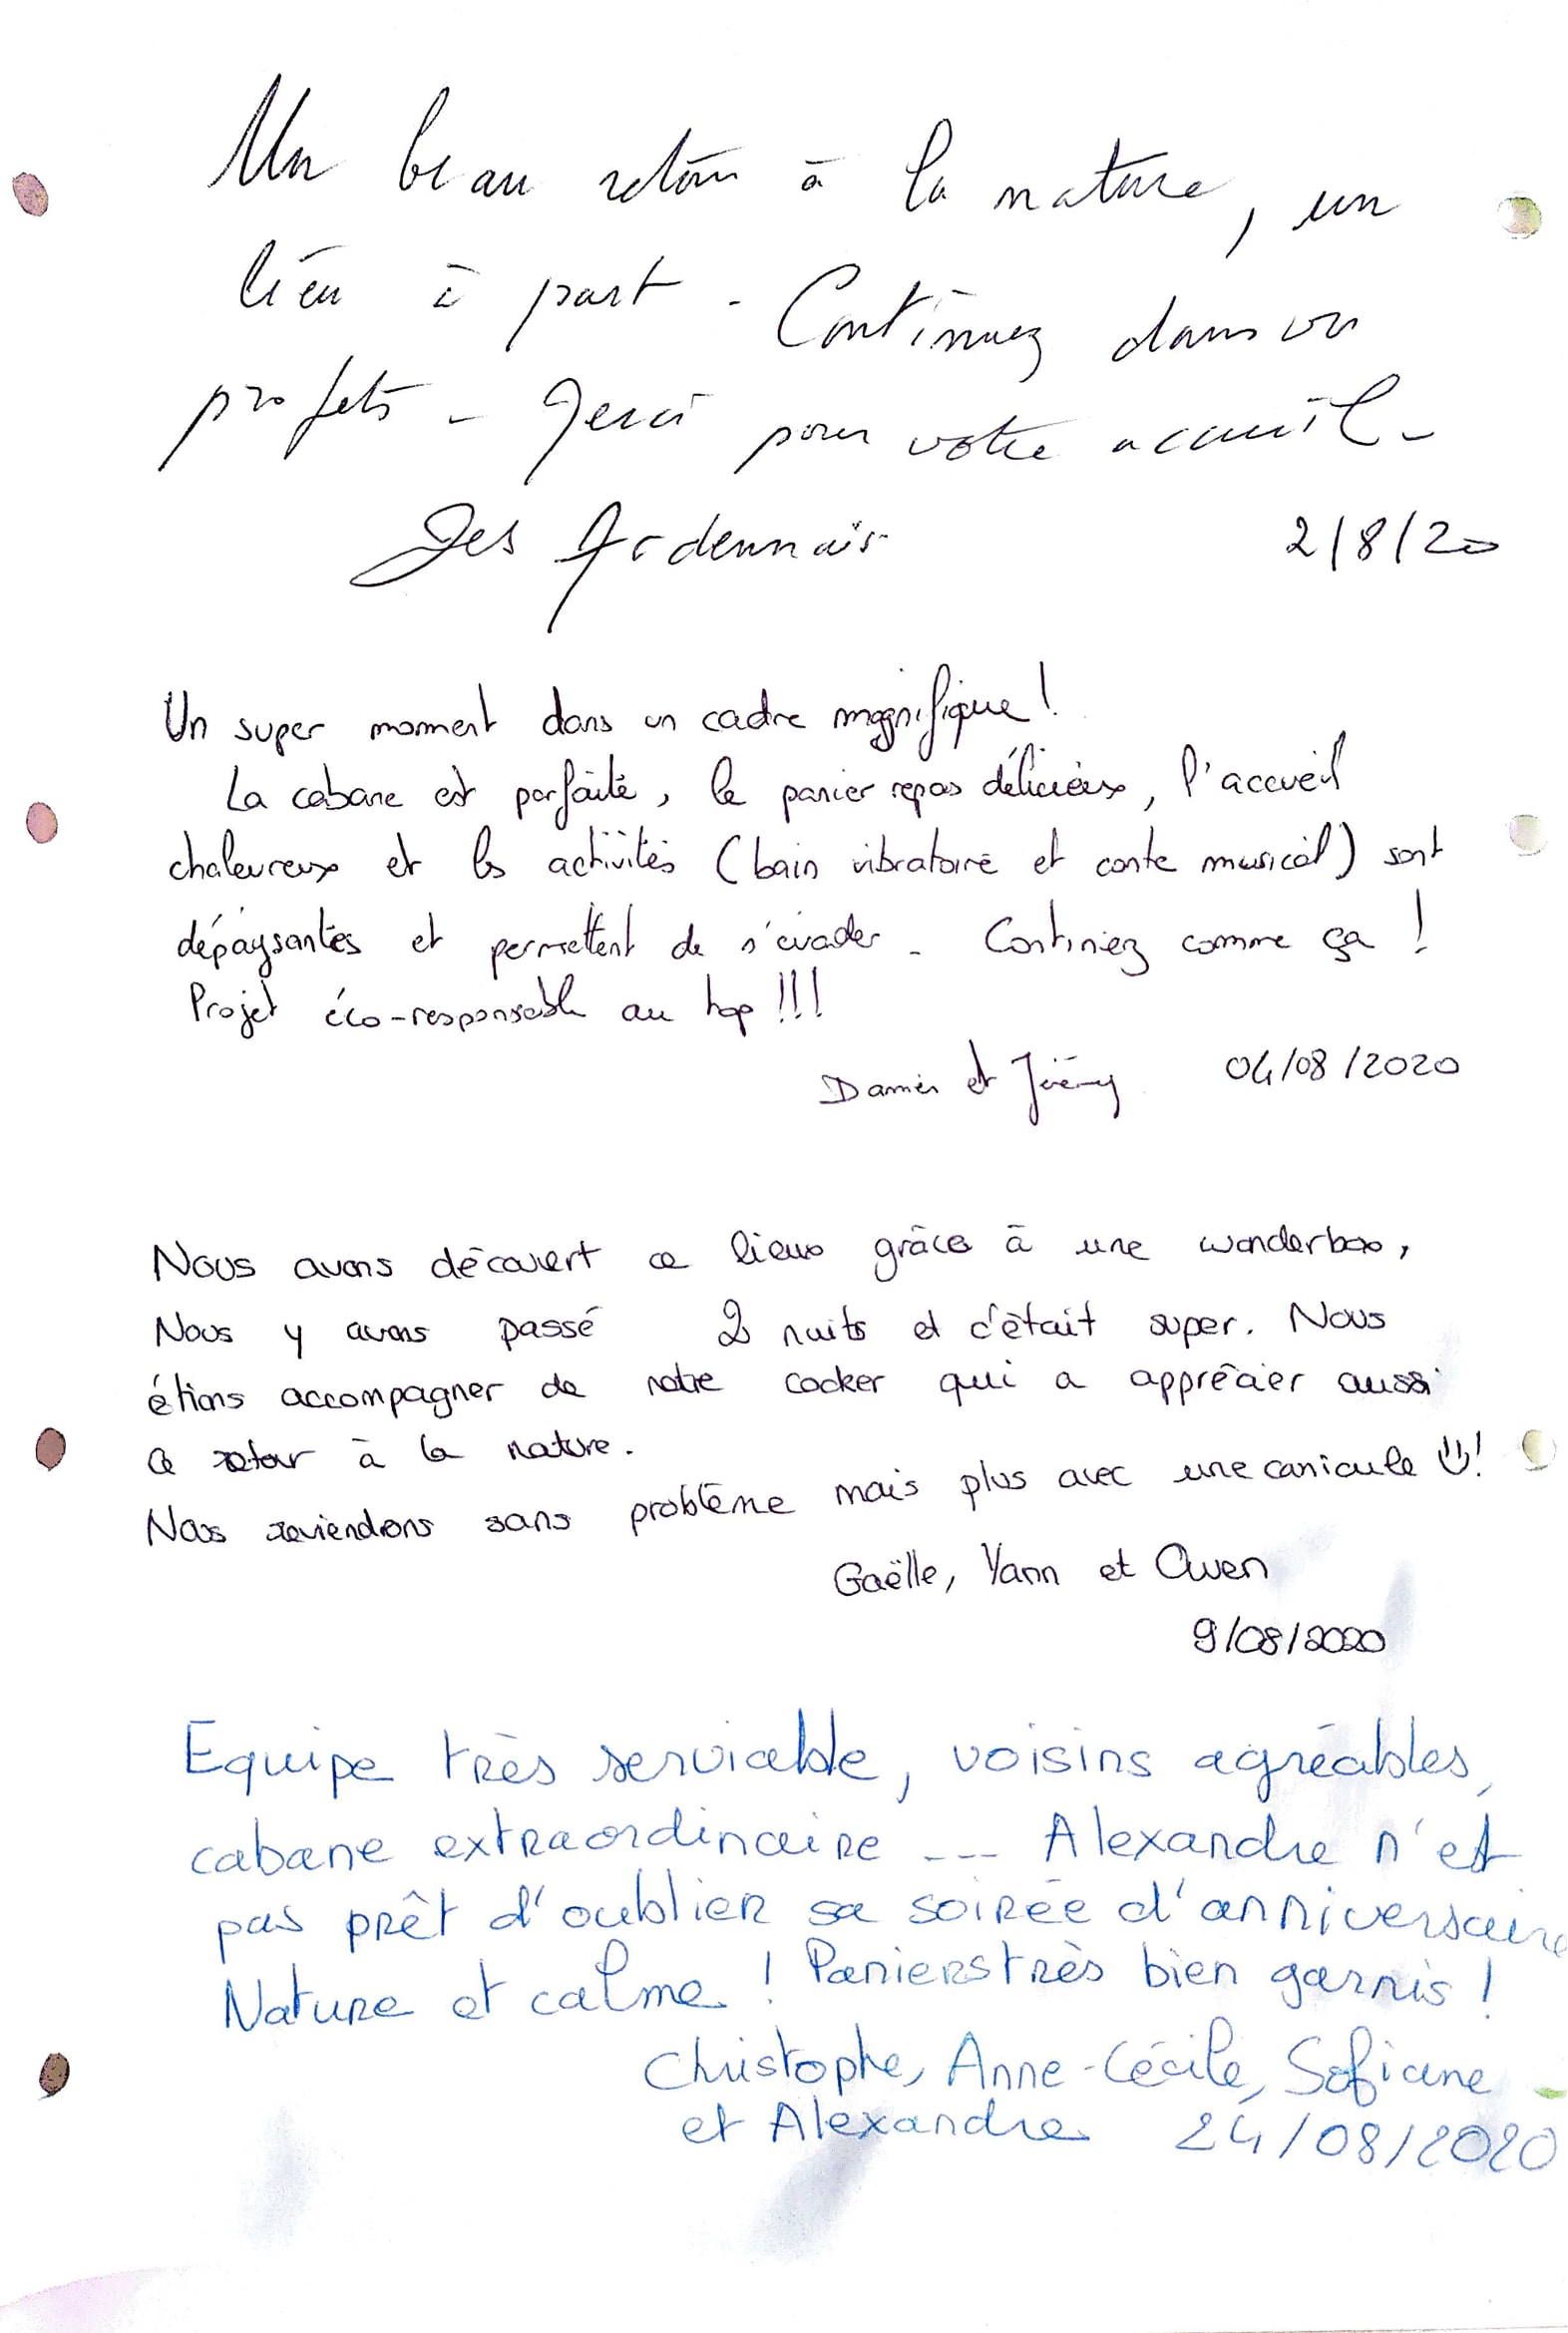 Un beau retour à la nature, un
lieu à part. Continuez dans vos
projets - Merci pour votre accueil -
Les Ardennais 2/8/20
Un super moment dans un cadre magnifique !
La cabane est parfaite, le panier repas délicieux, l'accueil
chaleureux et les activités (bain vibratoire et conte musical) sont
dépaysantes et permettent de s'évader. Continuez comme ça !
Projet éco-responsable au top !!!
Damien et Jérémy 04/08/2020
Nous avons découvert ce lieux grâce à une wonderbox,
Nous y avons passé 2 nuits et c'était super. Nous
étions accompagner de notre cocker qui a apprécier aussi
ce retour à la nature.
Nous reviendrons sans problème mais plus avec une canicule !
Gaëlle, Yann et Owen
9/08/2020
Equipe très serviable, voisins agréables,
cabane extraordinaire --- Alexandre n'est
pas prêt d'oublier sa soirée d'anniversaire
Nature et calme ! Paniers très bien garnis !
Christophe, Anne-Cécile, Sofiane
et Alexandre 24/08/2020